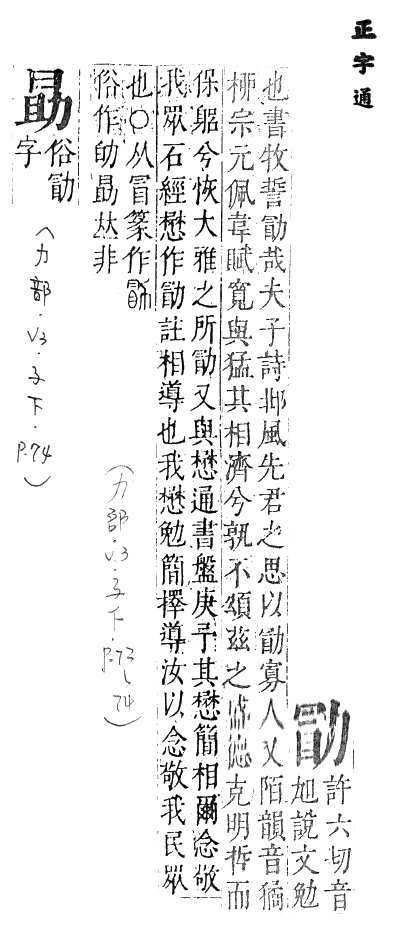 正字通
勖
許六切音
旭說文勉
也書牧誓勖哉夫子詩邶風先君之思以勖寡人又陌韻音
柳宗元佩韋賦寬與猛其相濟兮孰不頌茲之盛德克明哲而
保躬兮恢大雅之所勖又與懋通書盤庚予其懋簡相爾念敬
我眾石經懋作勖註相導也我懋勉簡擇導汝以念敬我民眾
也○从冒篆作勖
俗作勗𠀤非
(力部.V3.子下.P.73~74)
勗
俗勖
字
(力部.V3.子下.P.74)